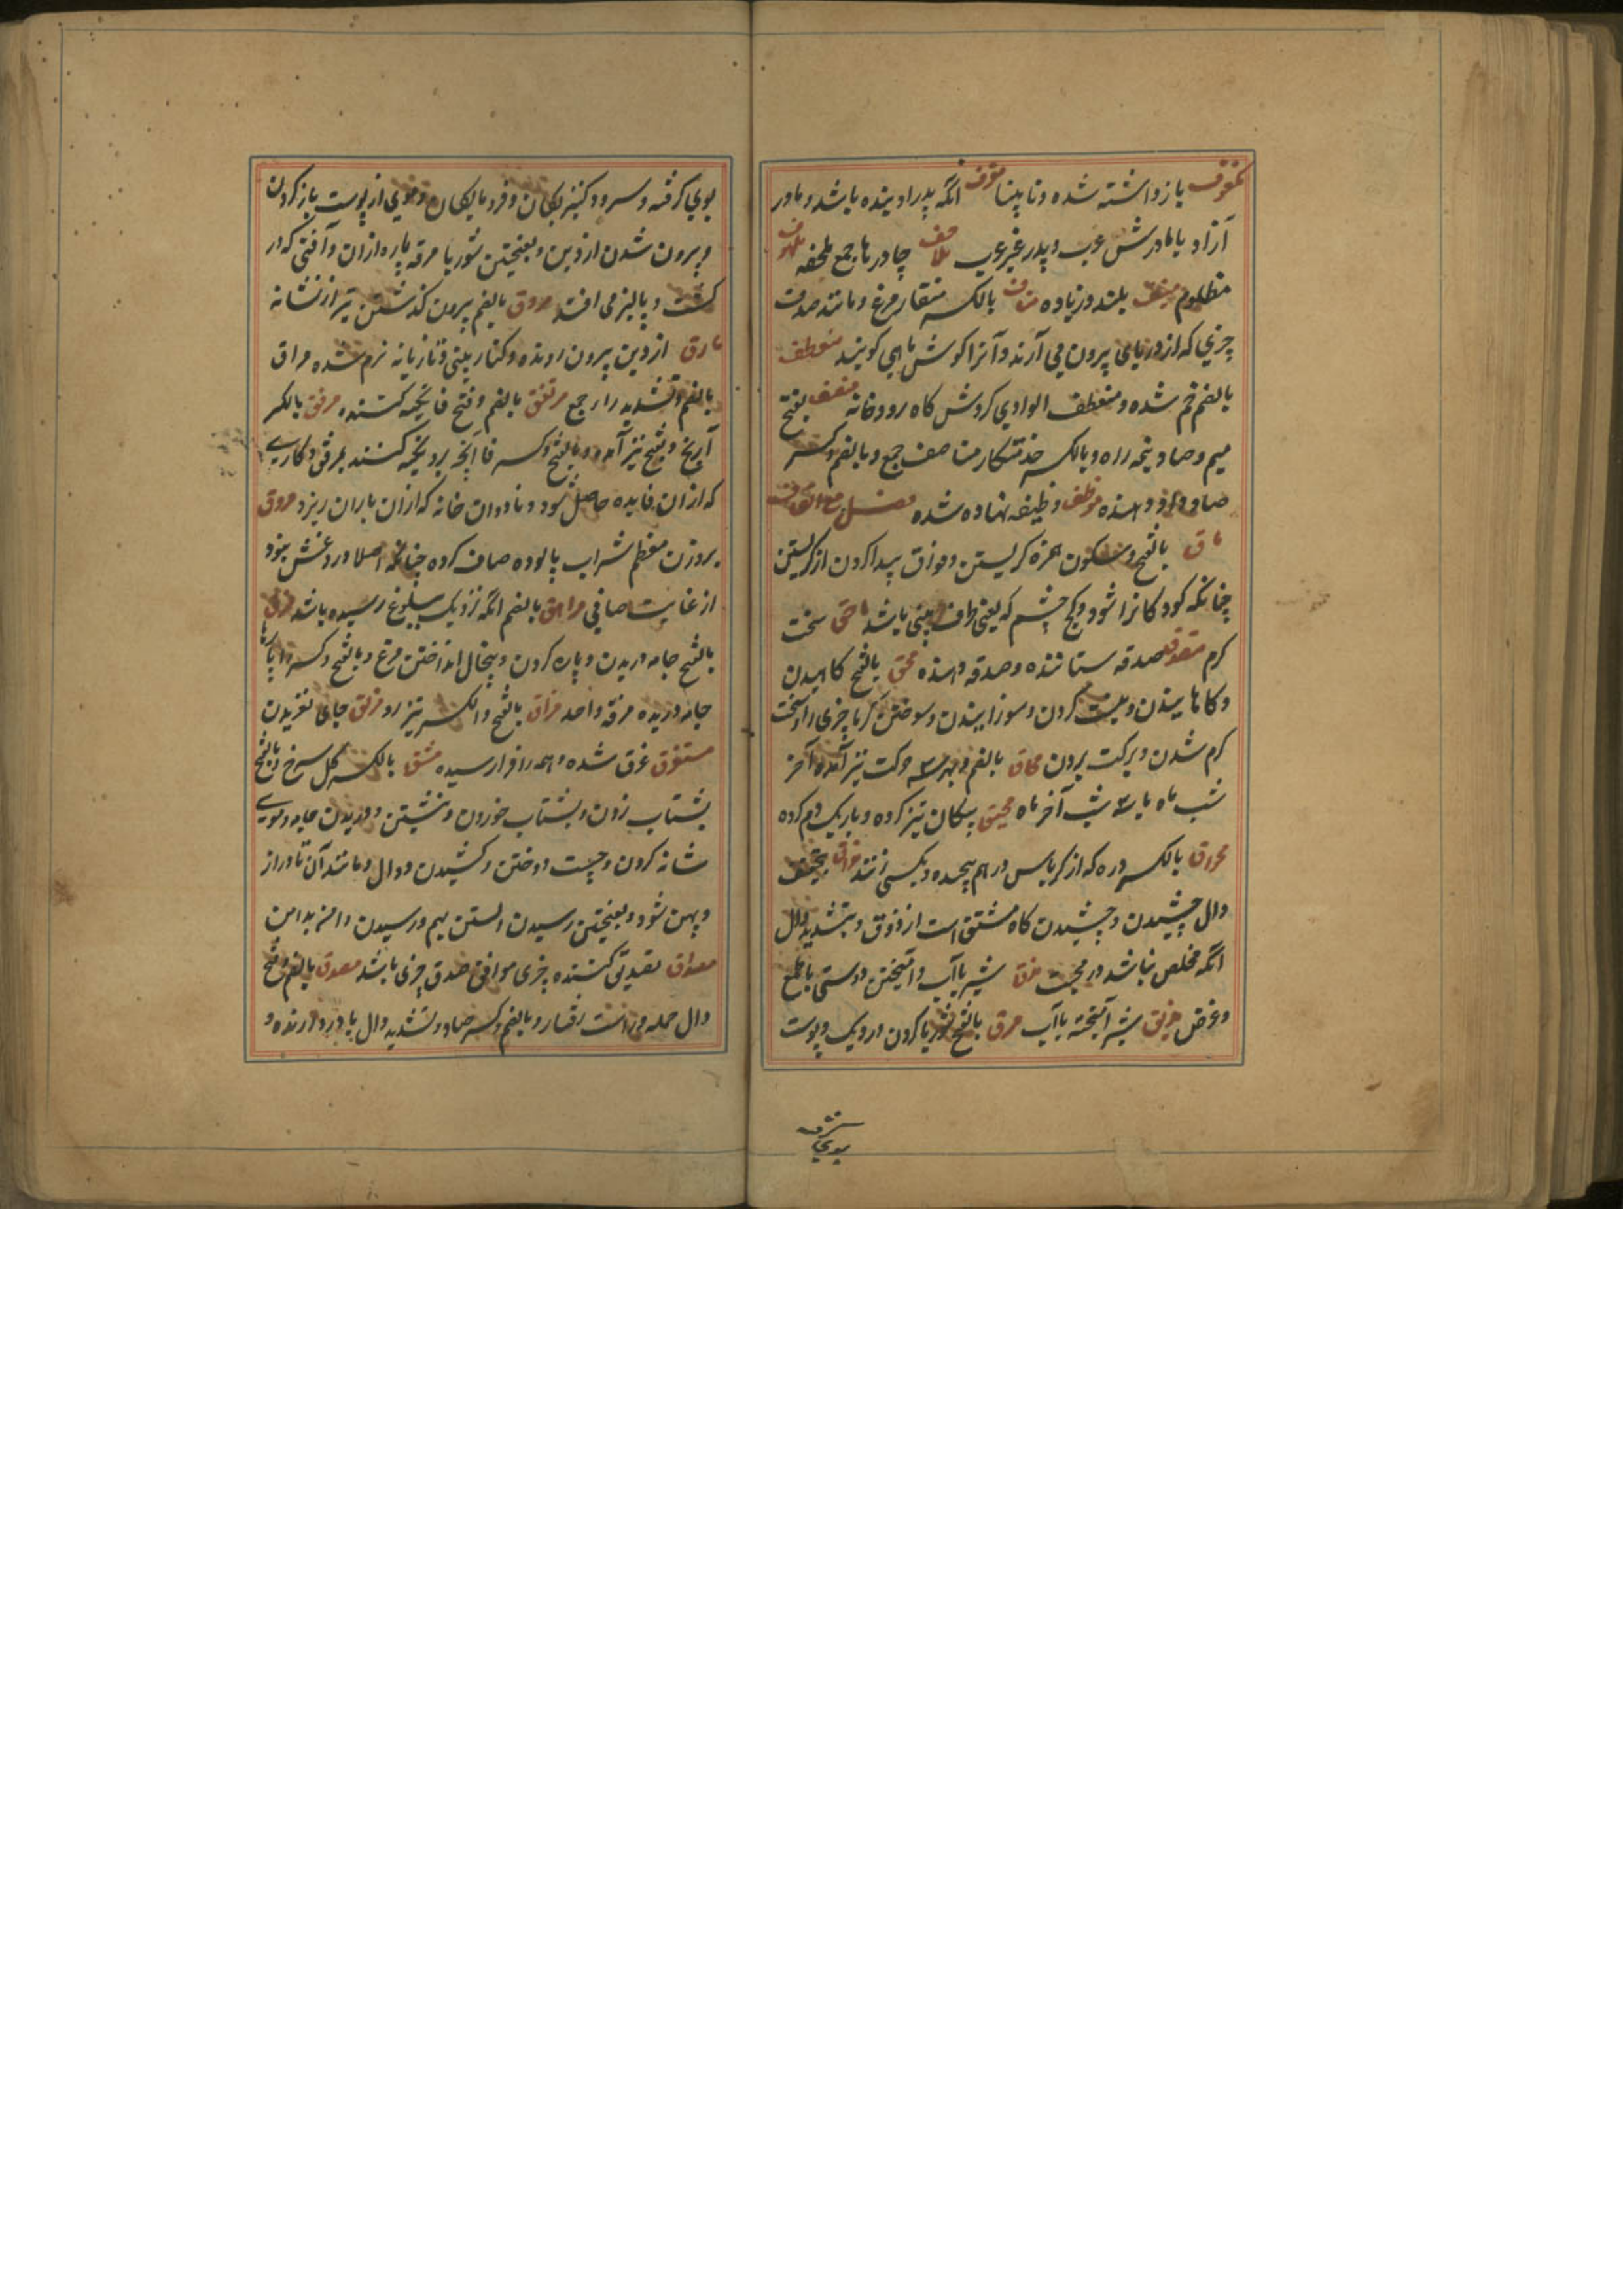 مکفوف بازداشته شده و نابینا مقرف انکه پدر او بنده باشد و مادر
آزاد یا مادرش عرب و پدر غیر عرب ملاحف چادرها جمع ملحفه ملهوف
مظلوم منیف بلند و زیاده بالکسر منقار مرغ و مانند صدف
چیزی که از دریای بیرون می آرند و آنرا کوش ماهی کویند منعطف
بالضم خم شده و منعطف الوادی کردش کاه رودخانه منصف بفتح
میم و صاد نیمه راه و بالکسر خدمتکار مناصف جمع و بالضم و کسر
صاد داد دهنده موظف وظیفه نهاده شده فصل مع القاف
ماق بالفتح و سکون همزه کریستن و فواق پیدا کردن از کریستن
چنانکه کودکانرا شود و کنج چشم که یعنی طرف بینی باشد ماحق سخت
کرم متصدق صدقه ستاننده و صدقه دهنده محق بالفتح کاهیدن
و کاهانیدن و نیست کردن و سوزانیدن و سوختن کرما چیزی را و سخت
کرم شدن و برکت بردن محاق بالضم و بهر سه حرکت نیز آمده آخر
شب ماه یا سه شب آخر ماه محیق پیکان تیز کرده و باریک دم کرده
مخراق بالکسر دره که از کرباس در هم پیچیده و بکسی زنند مذاق بتخفیف
ذال چشیدن و چشیدن کاه مشتق است از ذوق و بتشدید ذال
انکه مخلص نباشد در محبت مذق شیر باآب و آمیختن دوستی با طمع
و غرض مذیق شیر آمیخته باآب مرق بالفتح شوربا کردن در دیک و پوست
بوی کرفته و سرود کنیزکان و فرومایکان و موی از پوست باز کردن
و بیرون شدن از دین و بفتحتین شوربا مرقه پاره از ان و آفتی که در
کشت و پالیز می افتد مروق بالضم بیرون کذشتن تیر از نشانه
مارق از دین بیرون رونده و کنار بینی و تازیانه نرم شده مراق
بالضم و تشدید را جمع مرتفق بالضم و فتح فا تکیه کننده مرفق بالکسر
آرنج و بفتح نیز آمده و بالفتح و کسر فا آنچه برو تکیه کنند مرفق و کاری
که از ان فایده حاصل شود و ناودان خانه که از ان باران ریزد مروق
بر وزن معظم شراب پالوده صاف کرده چنانکه اصلا درد غش نبود
از غایت صافی مراهق بالضم انکه نزدیک ببلوغ رسیده باشد مزق
بالفتح جامه دریدن و پاره کردن و پیخال انداختن مرغ و بالفتح و کسر
جامه دریده مزقه واحد مزاق بالفتح و الکسر تیز رو مزلق جای لغزیدن
مستغرق غرق شده و همه را فرا رسیده مشق بالکسر کل سرخ و بالفتح
بشتاب زدن و بشتاب خوردن و نبشتن و دریدن جامه و موی
شانه کردن و چست دوختن و کشیدن دوال و مانند آن تا دراز
و پهن شود و بفتحتین رسیدن بهم و رسیدن دامن
مصداق تصدیق کننده چیزی موافق صدق چیزی باشد مصدق بالضم و فتح
دال حمله و راست رفتار و بالضم و کسر صاد و تشدید دال باور دارنده و
بوی